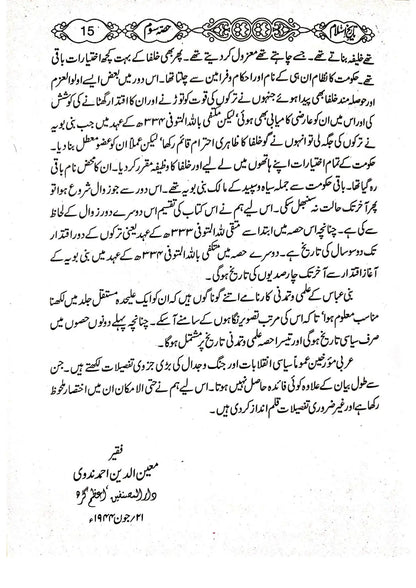 تاریخ اسلام
حصہ سوم
15
تھے خلیفہ بناتے تھے۔ جسے چاہتے تھے معزول کر دیتے تھے۔ پھر بھی خلفا کے بہت کچھ اختیارات باقی
تھے۔ حکومت کا نظام ان ہی کے نام اور احکام و فرامین سے چلتا تھا۔ اس دور میں بعض ایسے اولوالعزم
اور حوصلہ مند خلفا بھی پیدا ہوئے جنہوں نے ترکوں کی قوت کو توڑنے اور ان کا اقتدار گھٹانے کی کوشش
کی اور اس میں ان کو عارضی کامیابی بھی ہوئی‘ لیکن مکتفی باللہ المتوفی ۳۳۴ھ کے عہد میں جب بنی بویہ
نے ترکوں کی جگہ لی تو انہوں نے گو خلفا کا ظاہری احترام قائم رکھا‘ لیکن عملاً ان کو عضو معطل بنا دیا۔
حکومت کے تمام اختیارات اپنے ہاتھوں میں لے لیے اور خلفا کا وظیفہ مقرر کر دیا۔ ان کا محض نام باقی
رہ گیا تھا۔ باقی حکومت سے جملہ سیاہ و سپید کے مالک بنی بویہ تھے۔ اس دور سے جو زوال شروع ہوا تو
پھر آخر تک حالت نہ سنبھل سکی۔ اس لیے ہم نے اس کتاب کی تقسیم اس دوسرے دور زوال کے لحاظ
سے کی ہے۔ چنانچہ اس حصہ میں ابتدا سے متقی للہ المتوفی ۳۳۳ھ کے عہد یعنی ترکوں کے دور اقتدار
تک دو سو سال کی تاریخ ہے۔ دوسرے حصہ میں متکفی باللہ المتوفی ۳۳۴ھ کے عہد میں بنی بویہ کے
آغاز اقتدار سے آخر تک چار صدیوں کی تاریخ ہوگی۔
بنی عباس کے علمی و تمدنی کارنامے اتنے گونا گوں ہیں کہ ان کو ایک علیحدہ مستقل جلد میں لکھنا
مناسب معلوم ہوا‘ تا کہ اس کی مرتب تصویر نگاہوں کے سامنے آ سکے۔ چنانچہ پہلے دونوں حصوں میں
صرف سیاسی تاریخ ہوگی اور تیسرا حصہ علمی و تمدنی تاریخ پر مشتمل ہوگا۔
عربی مؤرخین عموماً سیاسی انقلابات اور جنگ و جدال کی بڑی جزوی تفصیلات لکھتے ہیں۔ جن
سے طول بیان کے علاوہ کوئی فائدہ حاصل نہیں ہوتا۔ اس لیے ہم نے حتی الامکان ان میں اختصار ملحوظ
رکھا ہے اور غیر ضروری تفصیلات قلم انداز کر دی ہیں۔
فقیر
معین الدین احمد ندوی
دار المصنفین‘ اعظم گڑھ
۲۱/ جون ۱۹۴۴ء